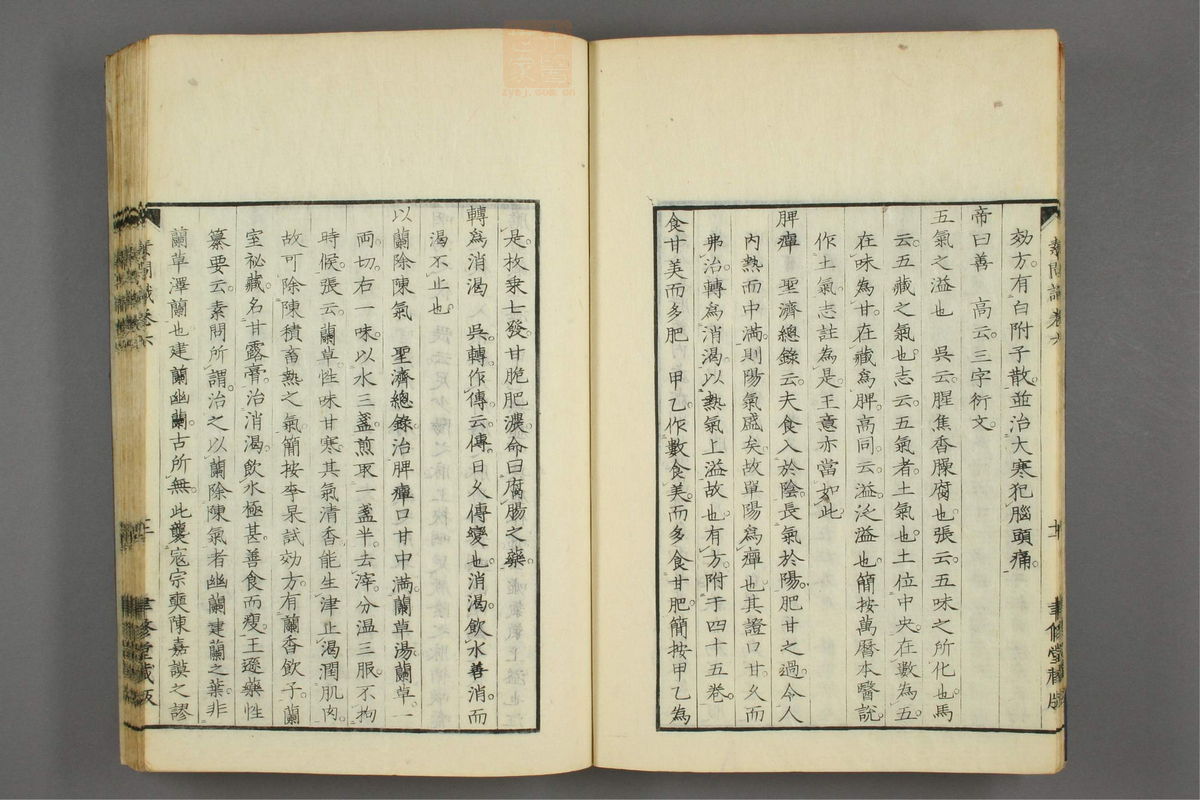 効方。有白附子散。並治大寒犯腦頭痛。
帝曰善　高云。三字衍文。
五氣之溢也　吳云。腥焦香臊腐也。張云。五味之所化也。馬
云。五藏之氣也。志云。五氣者。土氣也。土位中央。在數為五。
在味為甘。在藏為脾。高同。云。溢。泛溢也。簡按萬曆本醫說。
作上氣。志註為是。王意亦當如此。
脾癉　聖濟總錄云。夫食入於陰。長氣於陽。肥甘之過。令人
內熱而中滿。則陽氣盛矣。故單陽為癉也。其證口甘。久而
弗治。轉為消渴。以熱氣上溢故也。有方。附于四十五卷。
食甘美而多肥　甲乙。作數食美。而多食甘肥。簡按甲乙為
是。枚乘七發。甘脆肥濃。命曰腐腸之藥。
轉為消渴　吳。轉。作傳。云。傳。日久傳變也。消渴。飲水善消。而
渴不止也。
以蘭除陳氣　聖濟總錄。治脾癉口甘中滿。蘭草湯。蘭草。一
兩。切。右一味。以水三盞。煎取一盞半。去滓。分溫三服。不拘
時候。張云。蘭草。性味甘寒。其氣清香。能生津止渴。潤肌肉。
故可除陳積畜熱之氣。簡按李杲試効方。有蘭香飲子。蘭
室祕藏。名甘露膏。治消渴。飲水極甚。善食而瘦。王遜藥性
纂要云。素問所謂治之以蘭除陳氣者。幽蘭建蘭之葉。非
蘭草澤蘭也。建蘭幽蘭。古所無。此襲寇宗奭陳嘉謨之謬
素問識卷六
聿修堂藏版